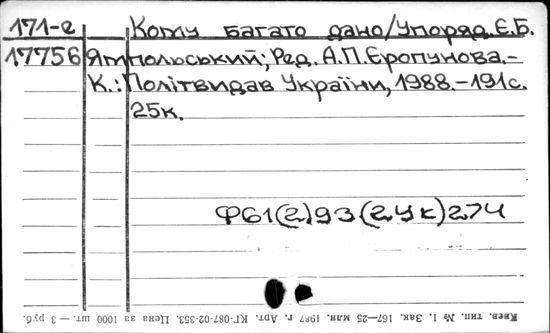 171-е Кому багато дано/Упоряд. Є.Б.
17756 Ямпольський; Ред. А.П.Єропунова.-
К.: Політвидав України, 1988.-191с.
25к.
Ф61(2)93(2Ук)274
Киев. тип. № 1. Зак. 167—25 млн. 1987 г. Арт. КГ-087-02-353. Цена за 1000 шт. — 3 руб.